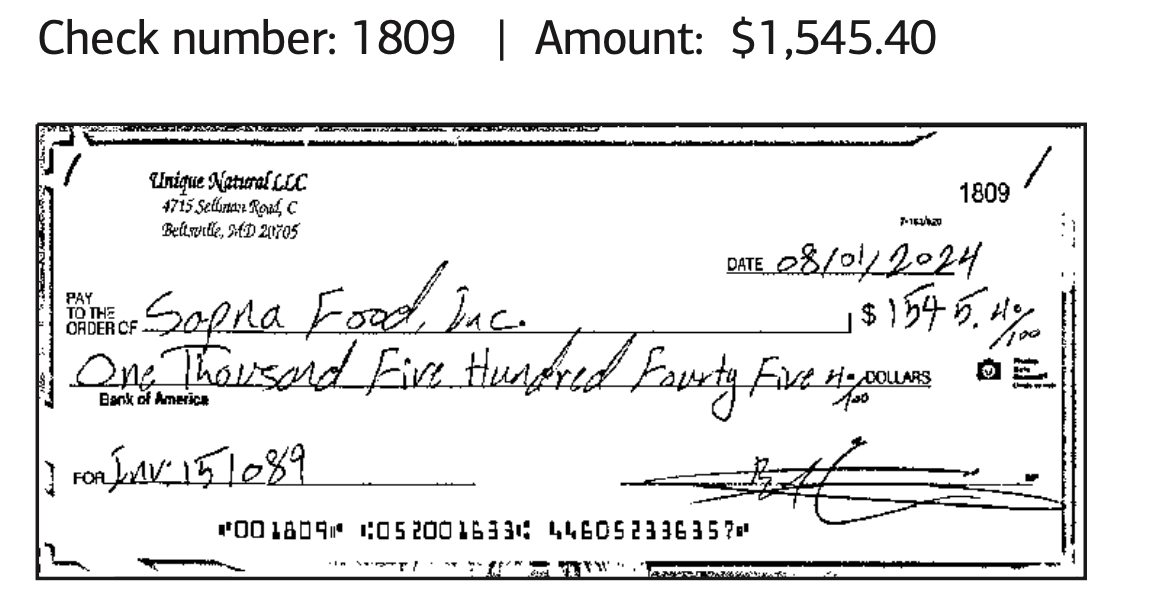 Check number: 1809 | Amount: $1,545.40
Unique Natural LLC
4715 Sellman Road, C
Beltsville, MD 20705
1809
7-163/520
DATE 08/01/2024
PAY TO THE ORDER OF Sapna Food, Inc.
$ 1545.40/100
One Thousand Five Hundred Fourty Five 40/100 DOLLARS
Bank of America
FOR Inv: 151089
⑈001809⑈ ⑆052001633⑆ 446052336357⑈